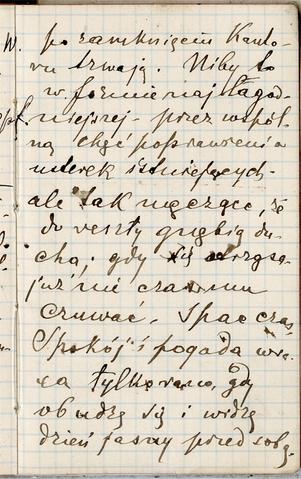 po zamknięciu Kanto-
ru trwają. Niby to
w formie najłagod-
niejszej - przez wspól-
ną chęć poprawienia
usterek istniejących -
ale tak męczące, że
do reszty gnębią du-
cha; gdy się
już nie czas mu
czuwać. Spać czas,
Spokój i pogoda wra-
ca tylko rano, gdy
obudzę się i widzę
dzień jasny przed sobą.